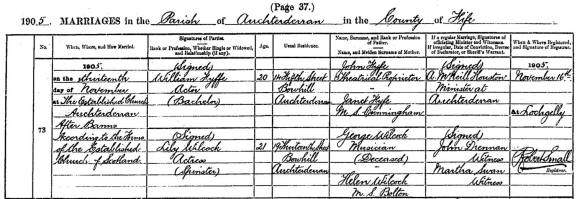 (Page 37.)
1905. MARRIAGES in the Parish of Auchterderran in the County of Fife
No.
When, Where, and How Married.
Signatures of Parties.
Rank or Profession, Whether Single or Widowed, and Relationship (if any).
Age.
Usual Residence.
Name, Surname, and Rank or Profession of Father.
Name, and Maiden Surname of Mother.
If a regular Marriage, Signatures of officiating Minister and Witnesses.
If irregular, Date of Conviction, Decree of Declarator, or Sheriff's Warrant.
When & Where Registered, and Signature of Registrar.
73
1905.
on the thirteenth
day of November
at The Established Church
Auchterderran
After Banns
According to the Forms
of the Established
Church of Scotland
(Signed)
William Fyffe
Actor
(Bachelor)
20
Street
Bowhill
Auchterderran
John Fyfe
Theatrical Proprietor
Janet Fyfe
M.S. Cunningham
(Signed)
A. McNeill Houston
Minister at
Auchterderran
1905.
November 16th
at Lochgelly
Robert Small
Registrar.
(Signed)
Lily Wilcock
Actress
(Spinster)
21
19 Thirteenth Street
Bowhill
Auchterderran
George Wilcock
Musician
(Deceased)
Helen Wilcock
M.S. Bolton
(Signed)
John Drennan
Witness
Martha Swan
Witness